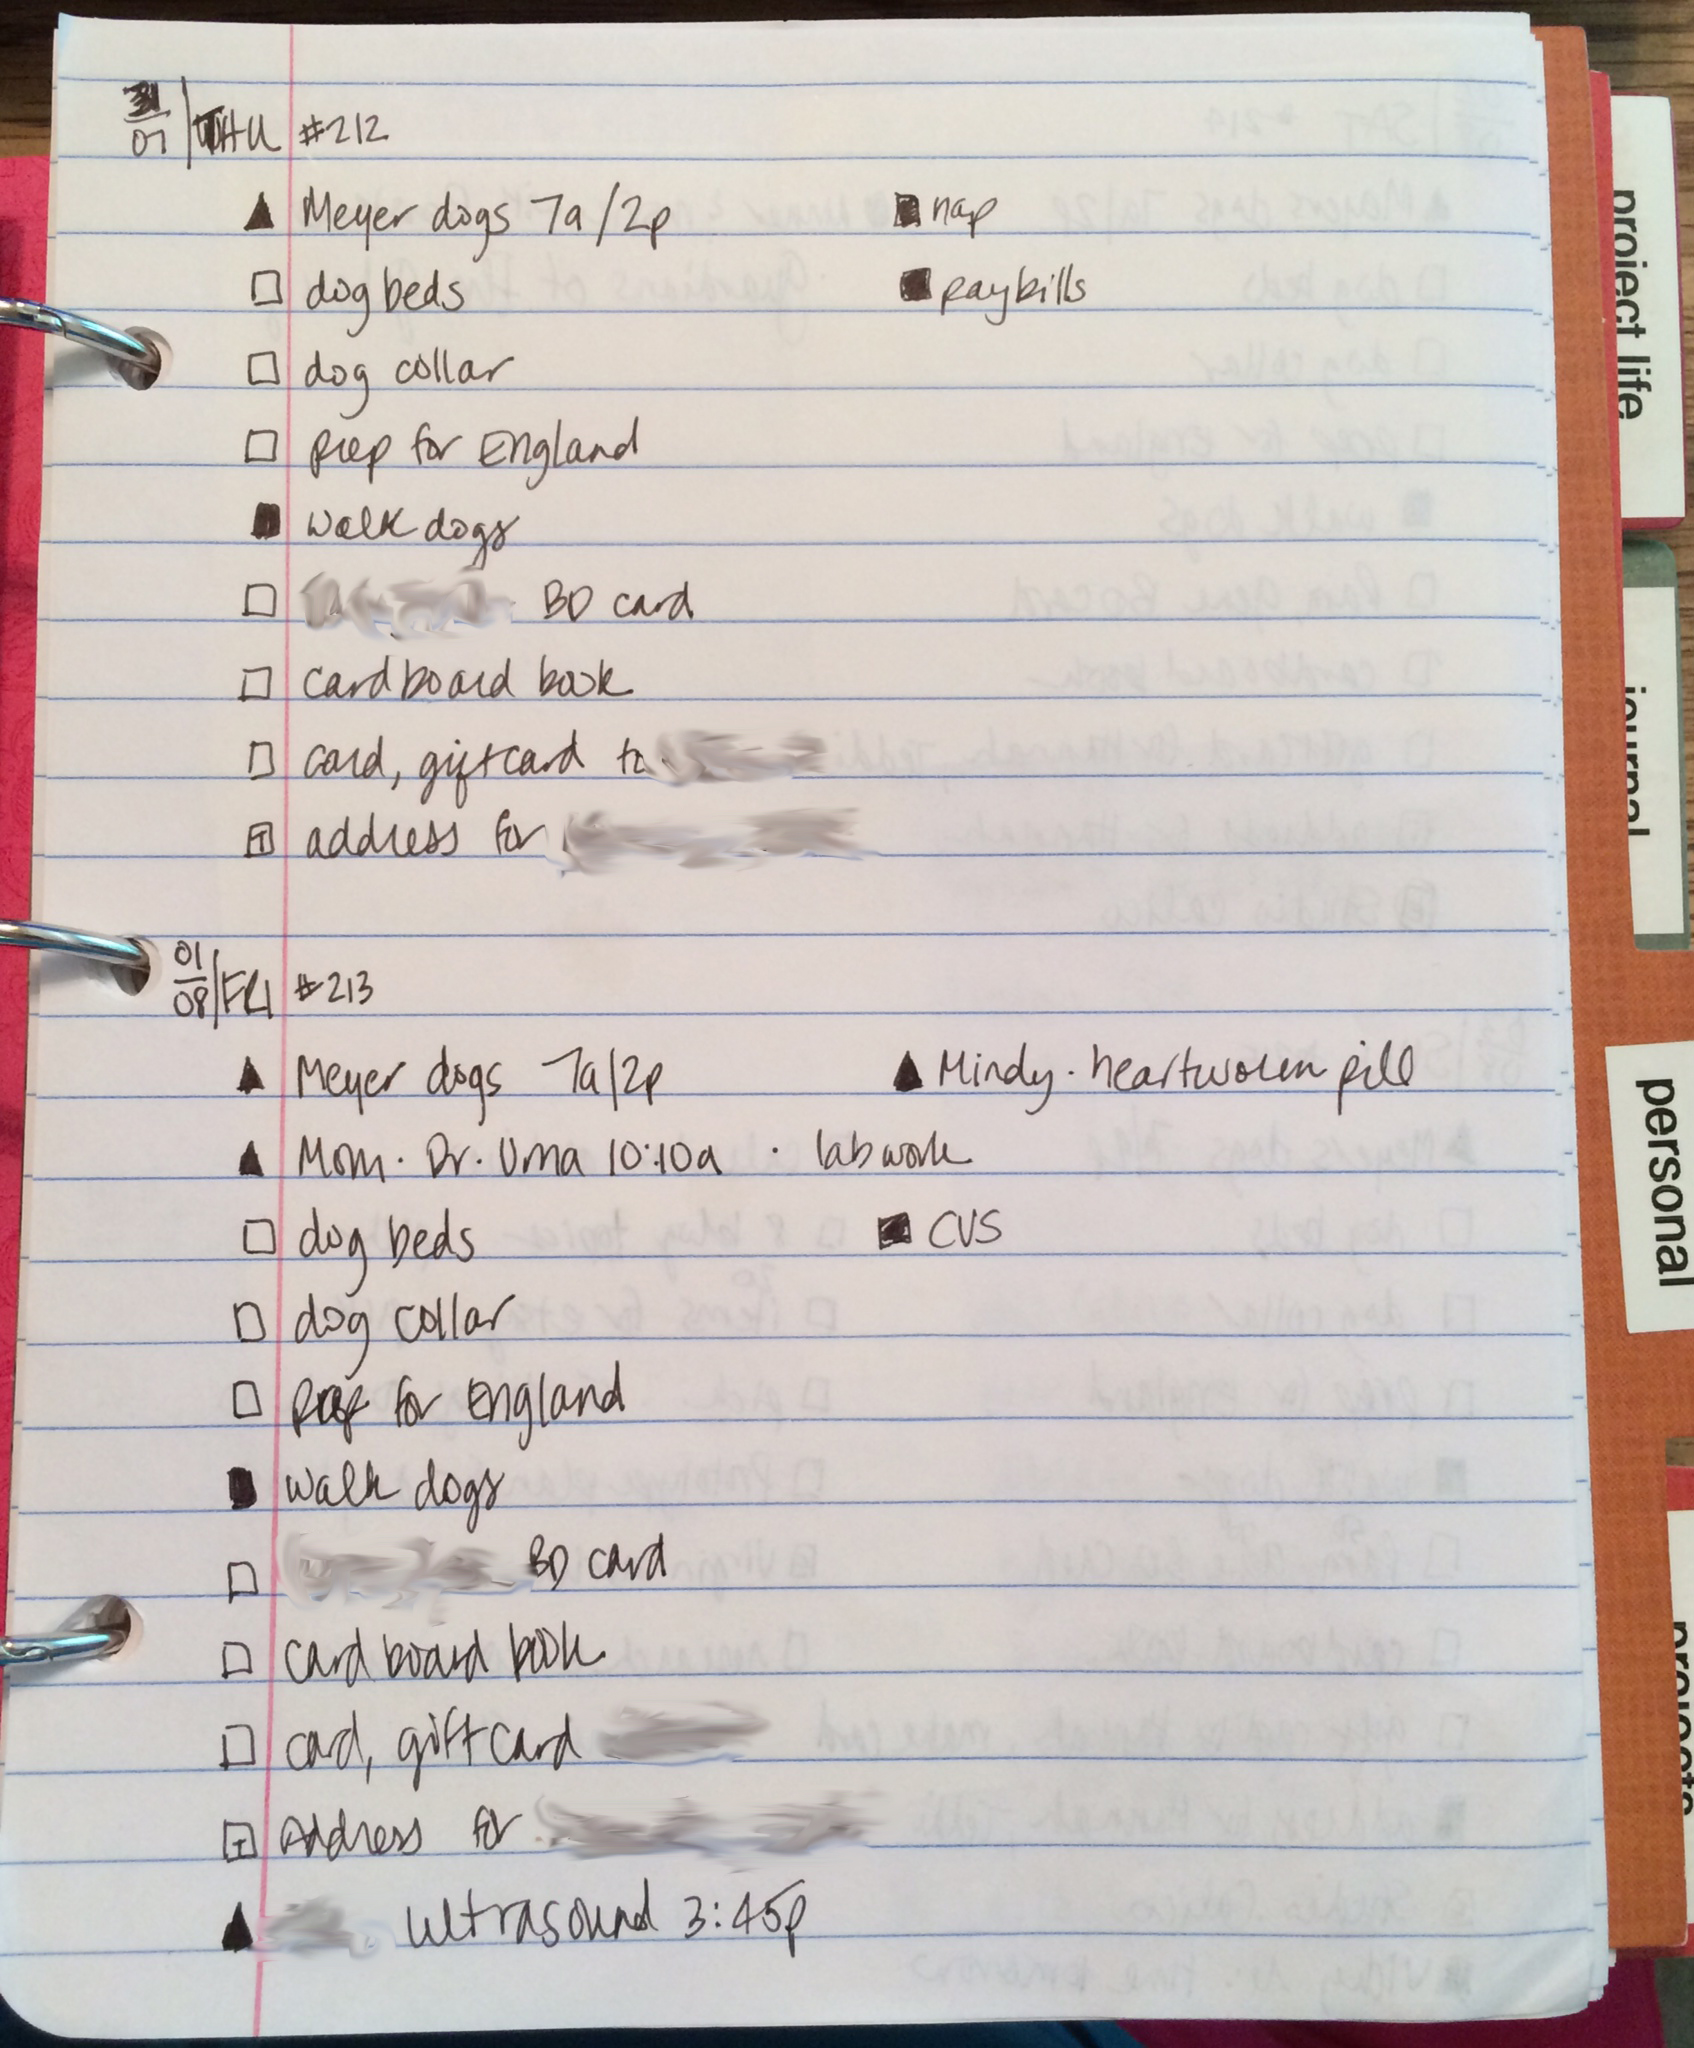 31/07 THU #212
▲ Meyer dogs 7a/2p ■ nap
□ dog beds ■ pay bills
□ dog collar
□ prep for England
■ walk dogs
□ BD card
□ cardboard book
□ card, giftcard to
□ address for
01/08 FRI #213
▲ Meyer dogs 7a/2p ▲ Mindy · heartworm pill
▲ Mom · Dr. Uma 10:10a · labwork
□ dog beds ■ CVS
□ dog collar
□ prep for England
■ walk dogs
□ BD card
□ cardboard book
□ card, giftcard
□ Address for
▲ ultrasound 3:45p
project life
journal
personal
projects